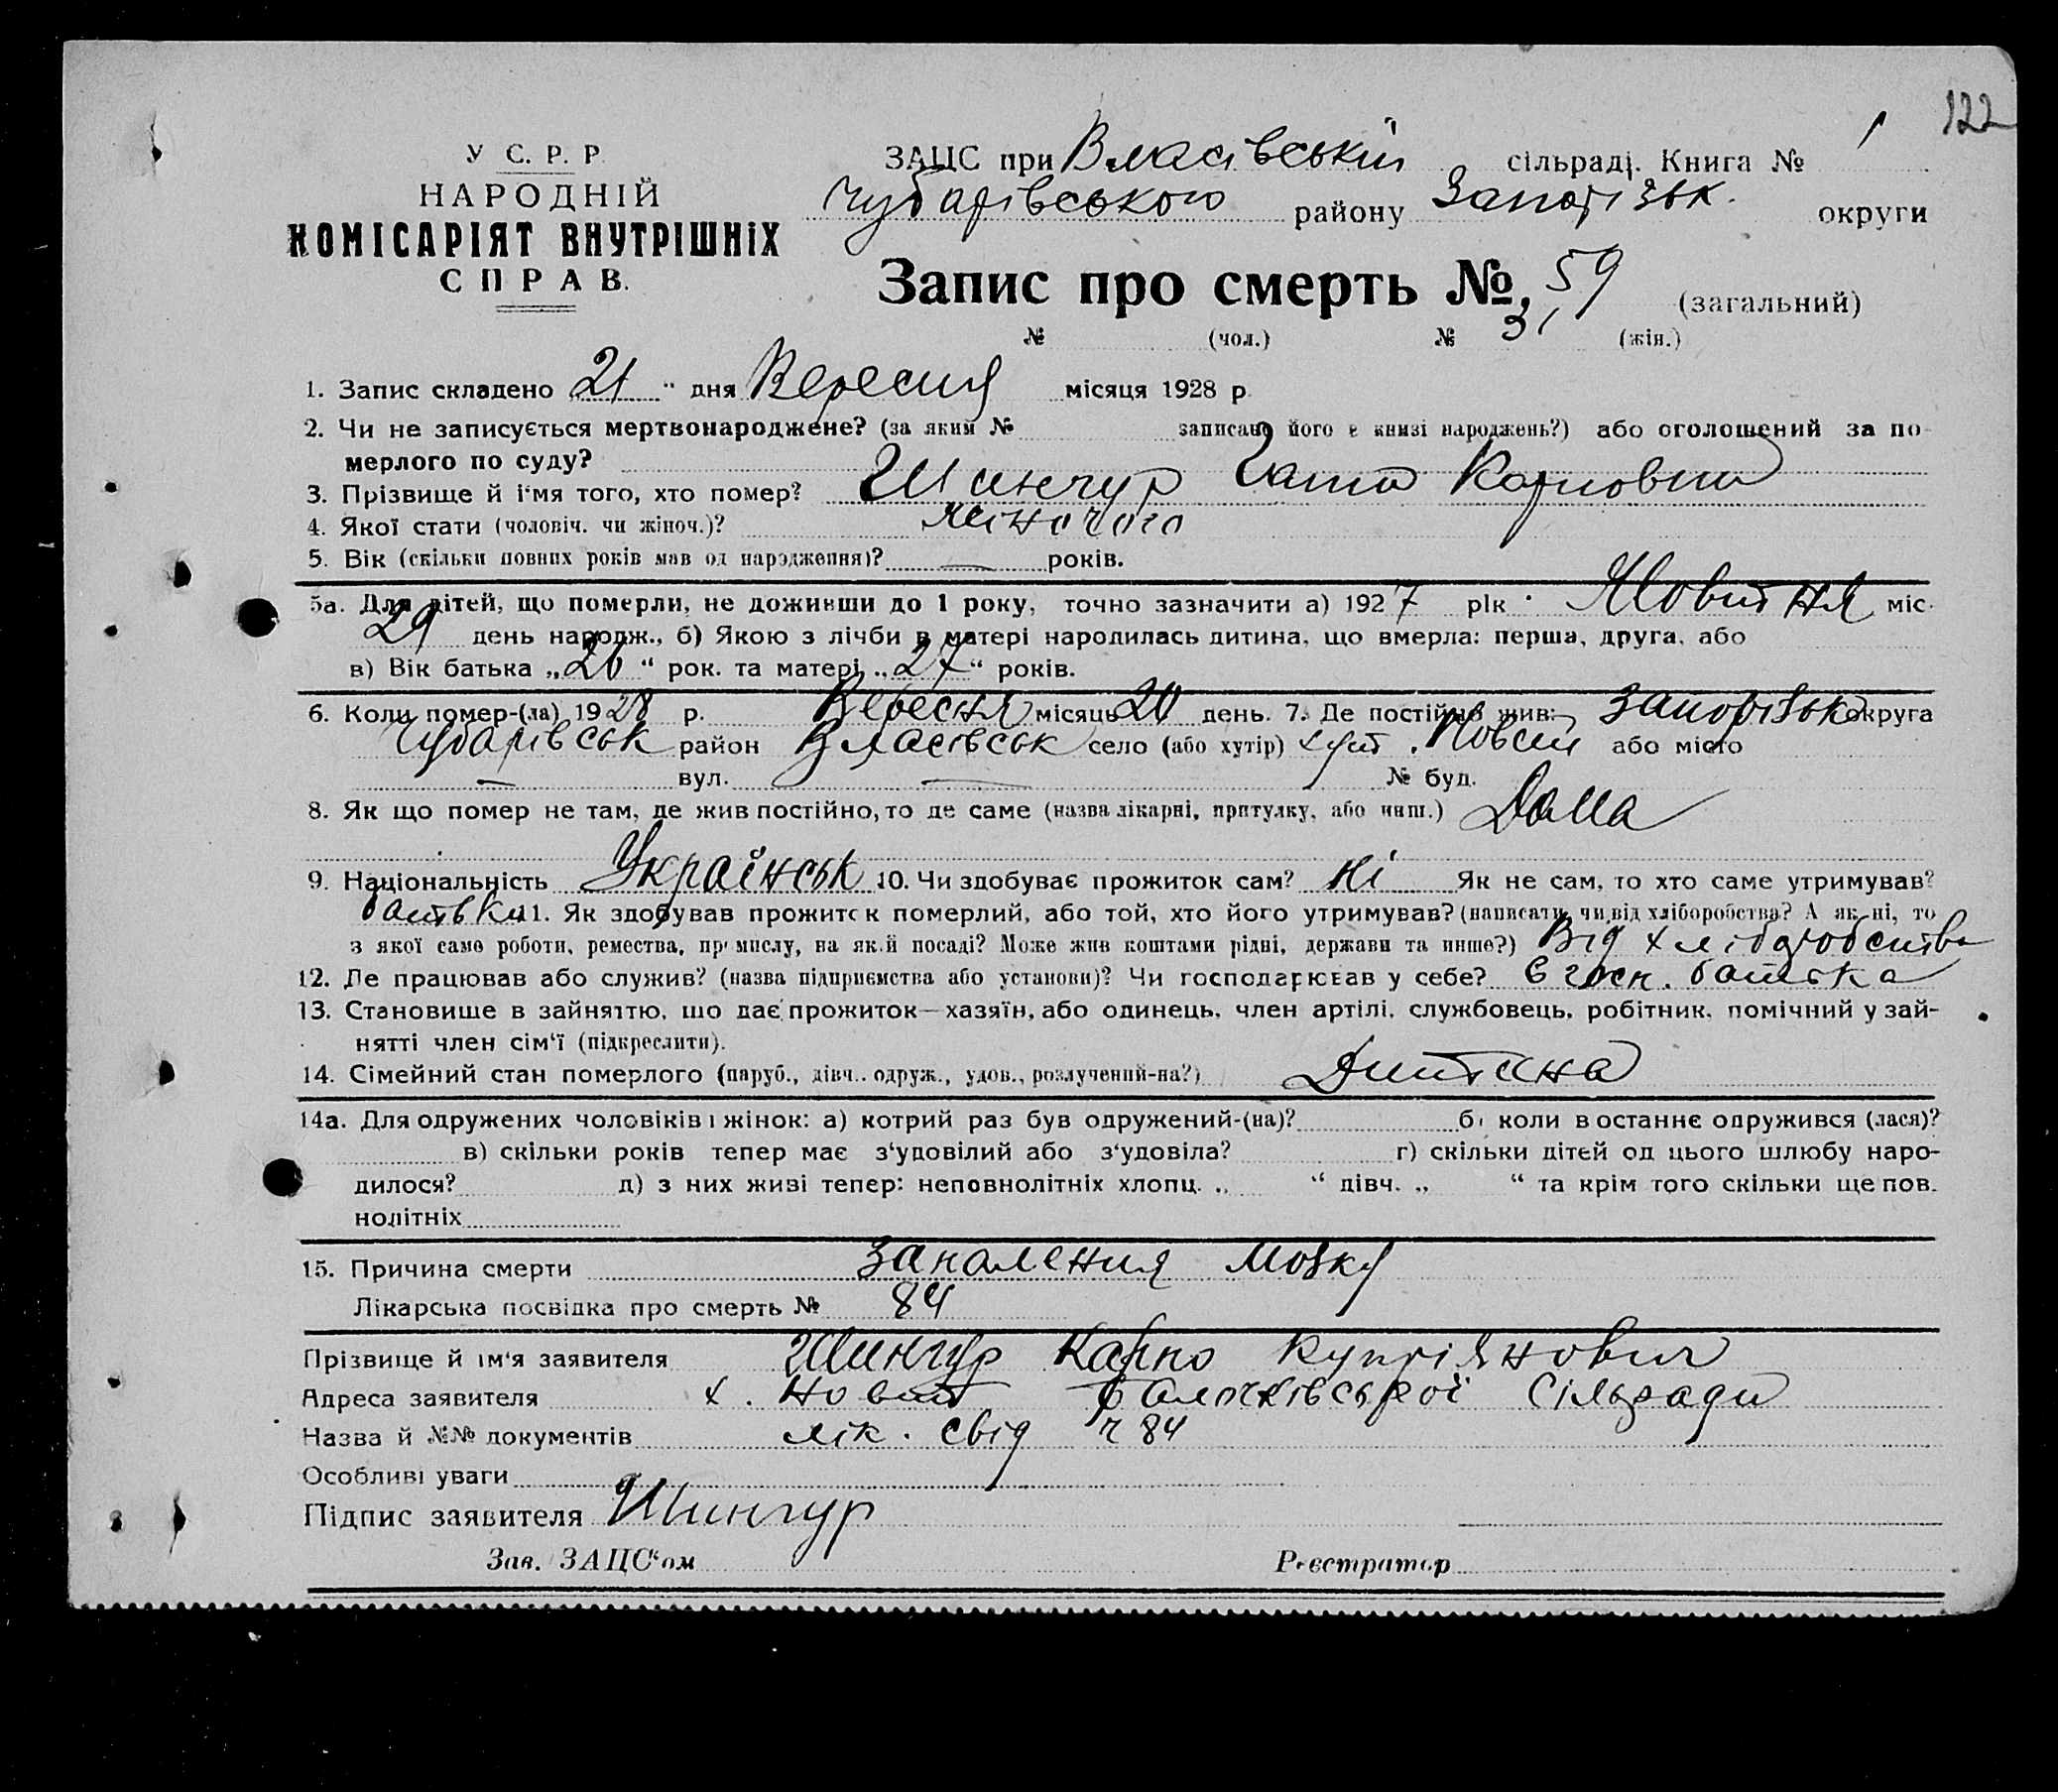 122
У С. Р. Р.
НАРОДНІЙ
КОМІСАРІЯТ ВНУТРІШНІХ
СПРАВ.
ЗАЦС при Власівський сільраді. Книга № 1
Чубарівського району Запорізьк. округи
Запис про смерть № 59 (загальний)
№ (чол.) № 31 (жін.)
1. Запис складено 21 " дня Вересня місяця 1928 р.
2. Чи не записується мертвонароджене? (за яким № записано його в книзі народжень?) або оголошений за по-
мерлого по суду?
3. Прізвище й ім'я того, хто помер? Шингур Карповна
4. Якої стати (чоловіч. чи жіноч.)? жіночого
5. Вік (скільки повних років мав од народження)? — років.
5а. Для дітей, що померли, не доживши до 1 року, точно зазначити а) 1927 рік Жовтня міс.
29 день народж., б) Якою з лічби в матері народилась дитина, що вмерла: перша, друга, або
в) Вік батька „26“ рок. та матері „27“ років.
6. Коли помер-(ла) 1928 р. Вересня місяць 20 день. 7. Де постійно жив: Запорізька округа
Чубарівськ район Власівськ село (або хутір) хут. або місто
— вул. — № буд.
8. Як що помер не там, де жив постійно, то де саме (назва лікарні, притулку, або инш.) Дома
9. Національність Українськ 10. Чи здобуває прожиток сам? Ні Як не сам, то хто саме утримував?
батьки 11. Як здобував прожиток померлий, або той, хто його утримував? (написати, чи від хліборобства? А як ні, то
з якої само роботи, ремества, промислу, на якій посаді? Може жив коштами рідні, держави та инше?) Від хліборобства
12. Де працював або служив? (назва підприємства або установи)? Чи господарював у себе? в госп. батька
13. Становище в зайняттю, що дає прожиток—хазяїн, або одинець, член артілі, службовець, робітник, помічний у зай-
нятті член сім'ї (підкреслити).
14. Сімейний стан померлого (паруб., дівч., одруж., удов., розлучений-на?) Дитина
14а. Для одружених чоловіків і жінок: а) котрий раз був одружений-(на)? б) коли в останнє одружився (лася)?
в) скільки років тепер має з'удовілий або з'удовіла? г) скільки дітей од цього шлюбу наро-
дилося? д) з них живі тепер: неповнолітніх хлопц. „ “ дівч. „ “ та крім того скільки ще пов.
нолітніх
15. Причина смерти запалення мозку
Лікарська посвідка про смерть № 84
Прізвище й ім'я заявителя Шингур Карпо Купріянович
Адреса заявителя х. Новий сільради
Назва й №№ документів лік. свід ч 84
Особливі уваги
Підпис заявителя Шингур
Зав. ЗАЦС'ом Реєстратор